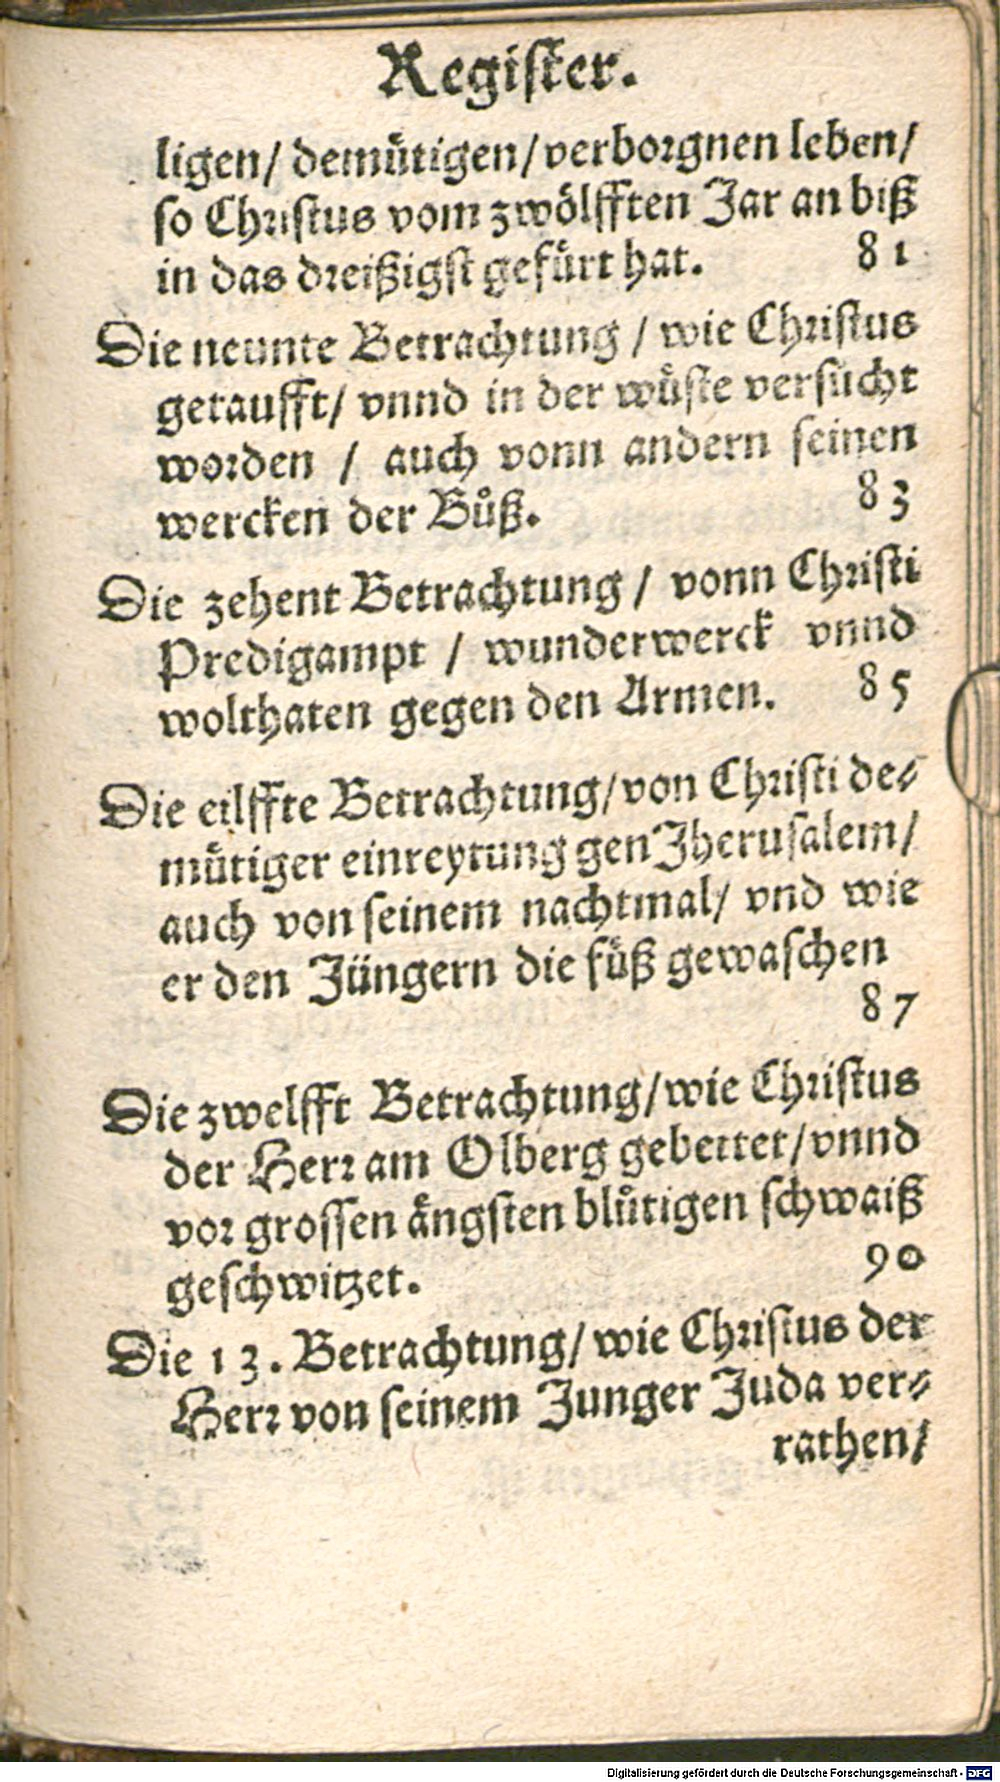 Register.
ligen/ demütigen/ verborgnen leben/
so Christus vom zwölfften Jar an biß
in das dreißigst gefürt hat. 81
Die neunte Betrachtung / wie Christus
getaufft/ vnnd in der wüste versucht
worden / auch vonn andern seinen
wercken der Bůß. 83
Die zehent Betrachtung / vonn Christi
Predigampt / wunderwerck vnnd
wolthaten gegen den Armen. 85
Die eilffte Betrachtung/ von Christi de⸗
mütiger einreytung gen Jherusalem/
auch von seinem nachtmal/ vnd wie
er den Jüngern die füß gewaschen
87
Die zwelfft Betrachtung/ wie Christus
der Herr am Olberg gebettet/ vnnd
vor grossen ängsten blůtigen schwaiß
geschwitzet. 90
Die 13. Betrachtung/ wie Christus der
Herr von seinem Junger Juda ver⸗
rathen/
Digitalisierung gefördert durch die Deutsche Forschungsgemeinschaft - DFG